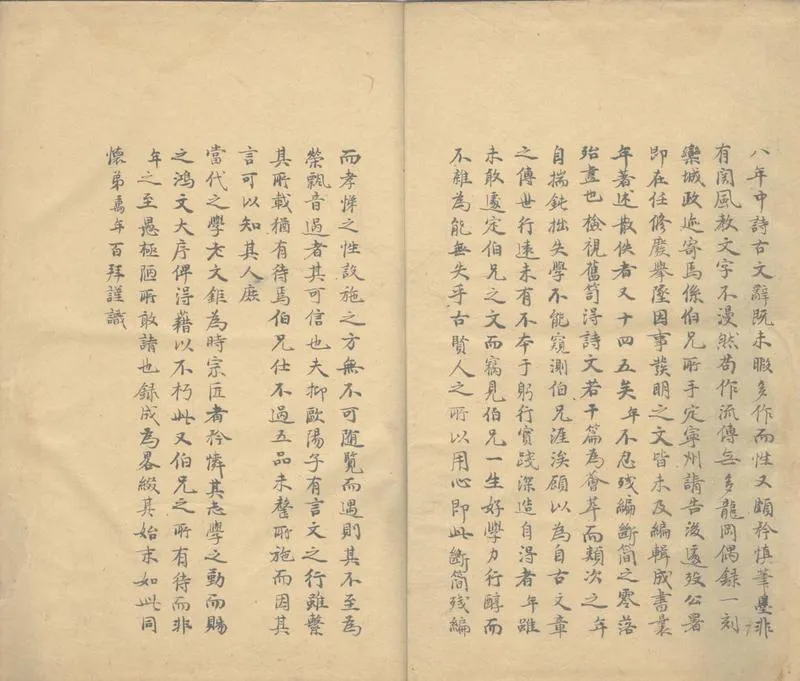 八年中詩古文辭既未暇多作而性又頗矜慎筆墨非
有関風教文字不漫然苟作流傳無多龍岡偶録一刻
欒城政迹寄焉係伯兄所手定寧州請告後遽歿公署
即在任修廢舉墜因事發明之文皆未及編輯成書曩
年著述散佚者又十四五矣年不忍残編斷簡之零落
殆盡也檢視舊笥得詩文若干篇為薈萃而類次之年
自揣鈍拙失學不能窺測伯兄涯涘顧以為自古文章
之傳世行遠未有不本于躬行實踐深造自得者年雖
未敢遽定伯兄之文而竊見伯兄一生好學力行醇而
不雜為能無失乎古賢人之所以用心即此斷简残編
而孝悌之性設施之方無不可随覽而遇則其不至為
榮飄音過者其可信也夫抑歐陽子有言文之行雖繫
其所載猶有待焉伯兄仕不過五品未罄所施而因其
言可以知其人庶
當代之學老文鉅為時宗匠者矜憐其志學之勤而賜
之鴻文大序俾得藉以不朽此又伯兄之所有待而非
年之至愚極陋所敢請也録成為畧綴其始末如此同
懷弟年百拜謹識